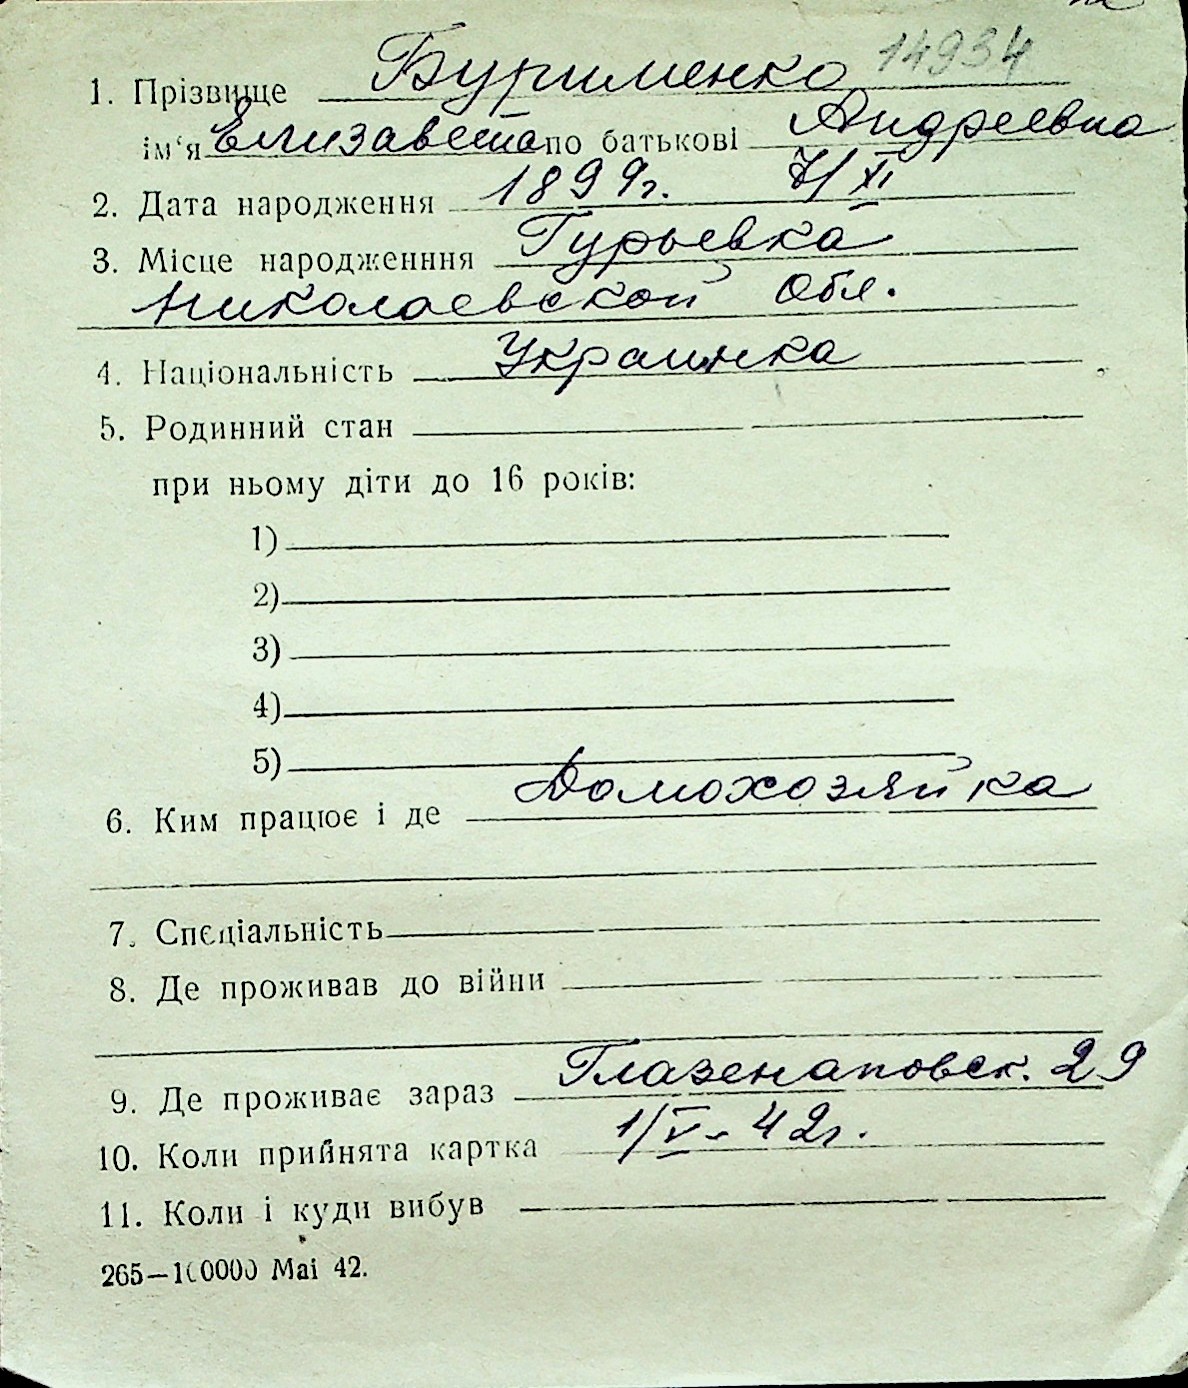 1. Прізвище Бурименко 14934
ім'я Елизавета по батькові Андреевна
2. Дата народження 1899г. 7/XI
3. Місце народженння Гурьевка
Николаевской обл.
4. Національність Украинка
5. Родинний стан
при ньому діти до 16 років:
1)
2)
3)
4)
5)
6. Ким працює і де Домохозяйка
7. Спєціальність
8. Де проживав до війни
9. Де проживає зараз Глазенаповск. 29
10. Коли прийнята картка 1/V-42г.
11. Коли і куди вибув
265—100000 Mai 42.